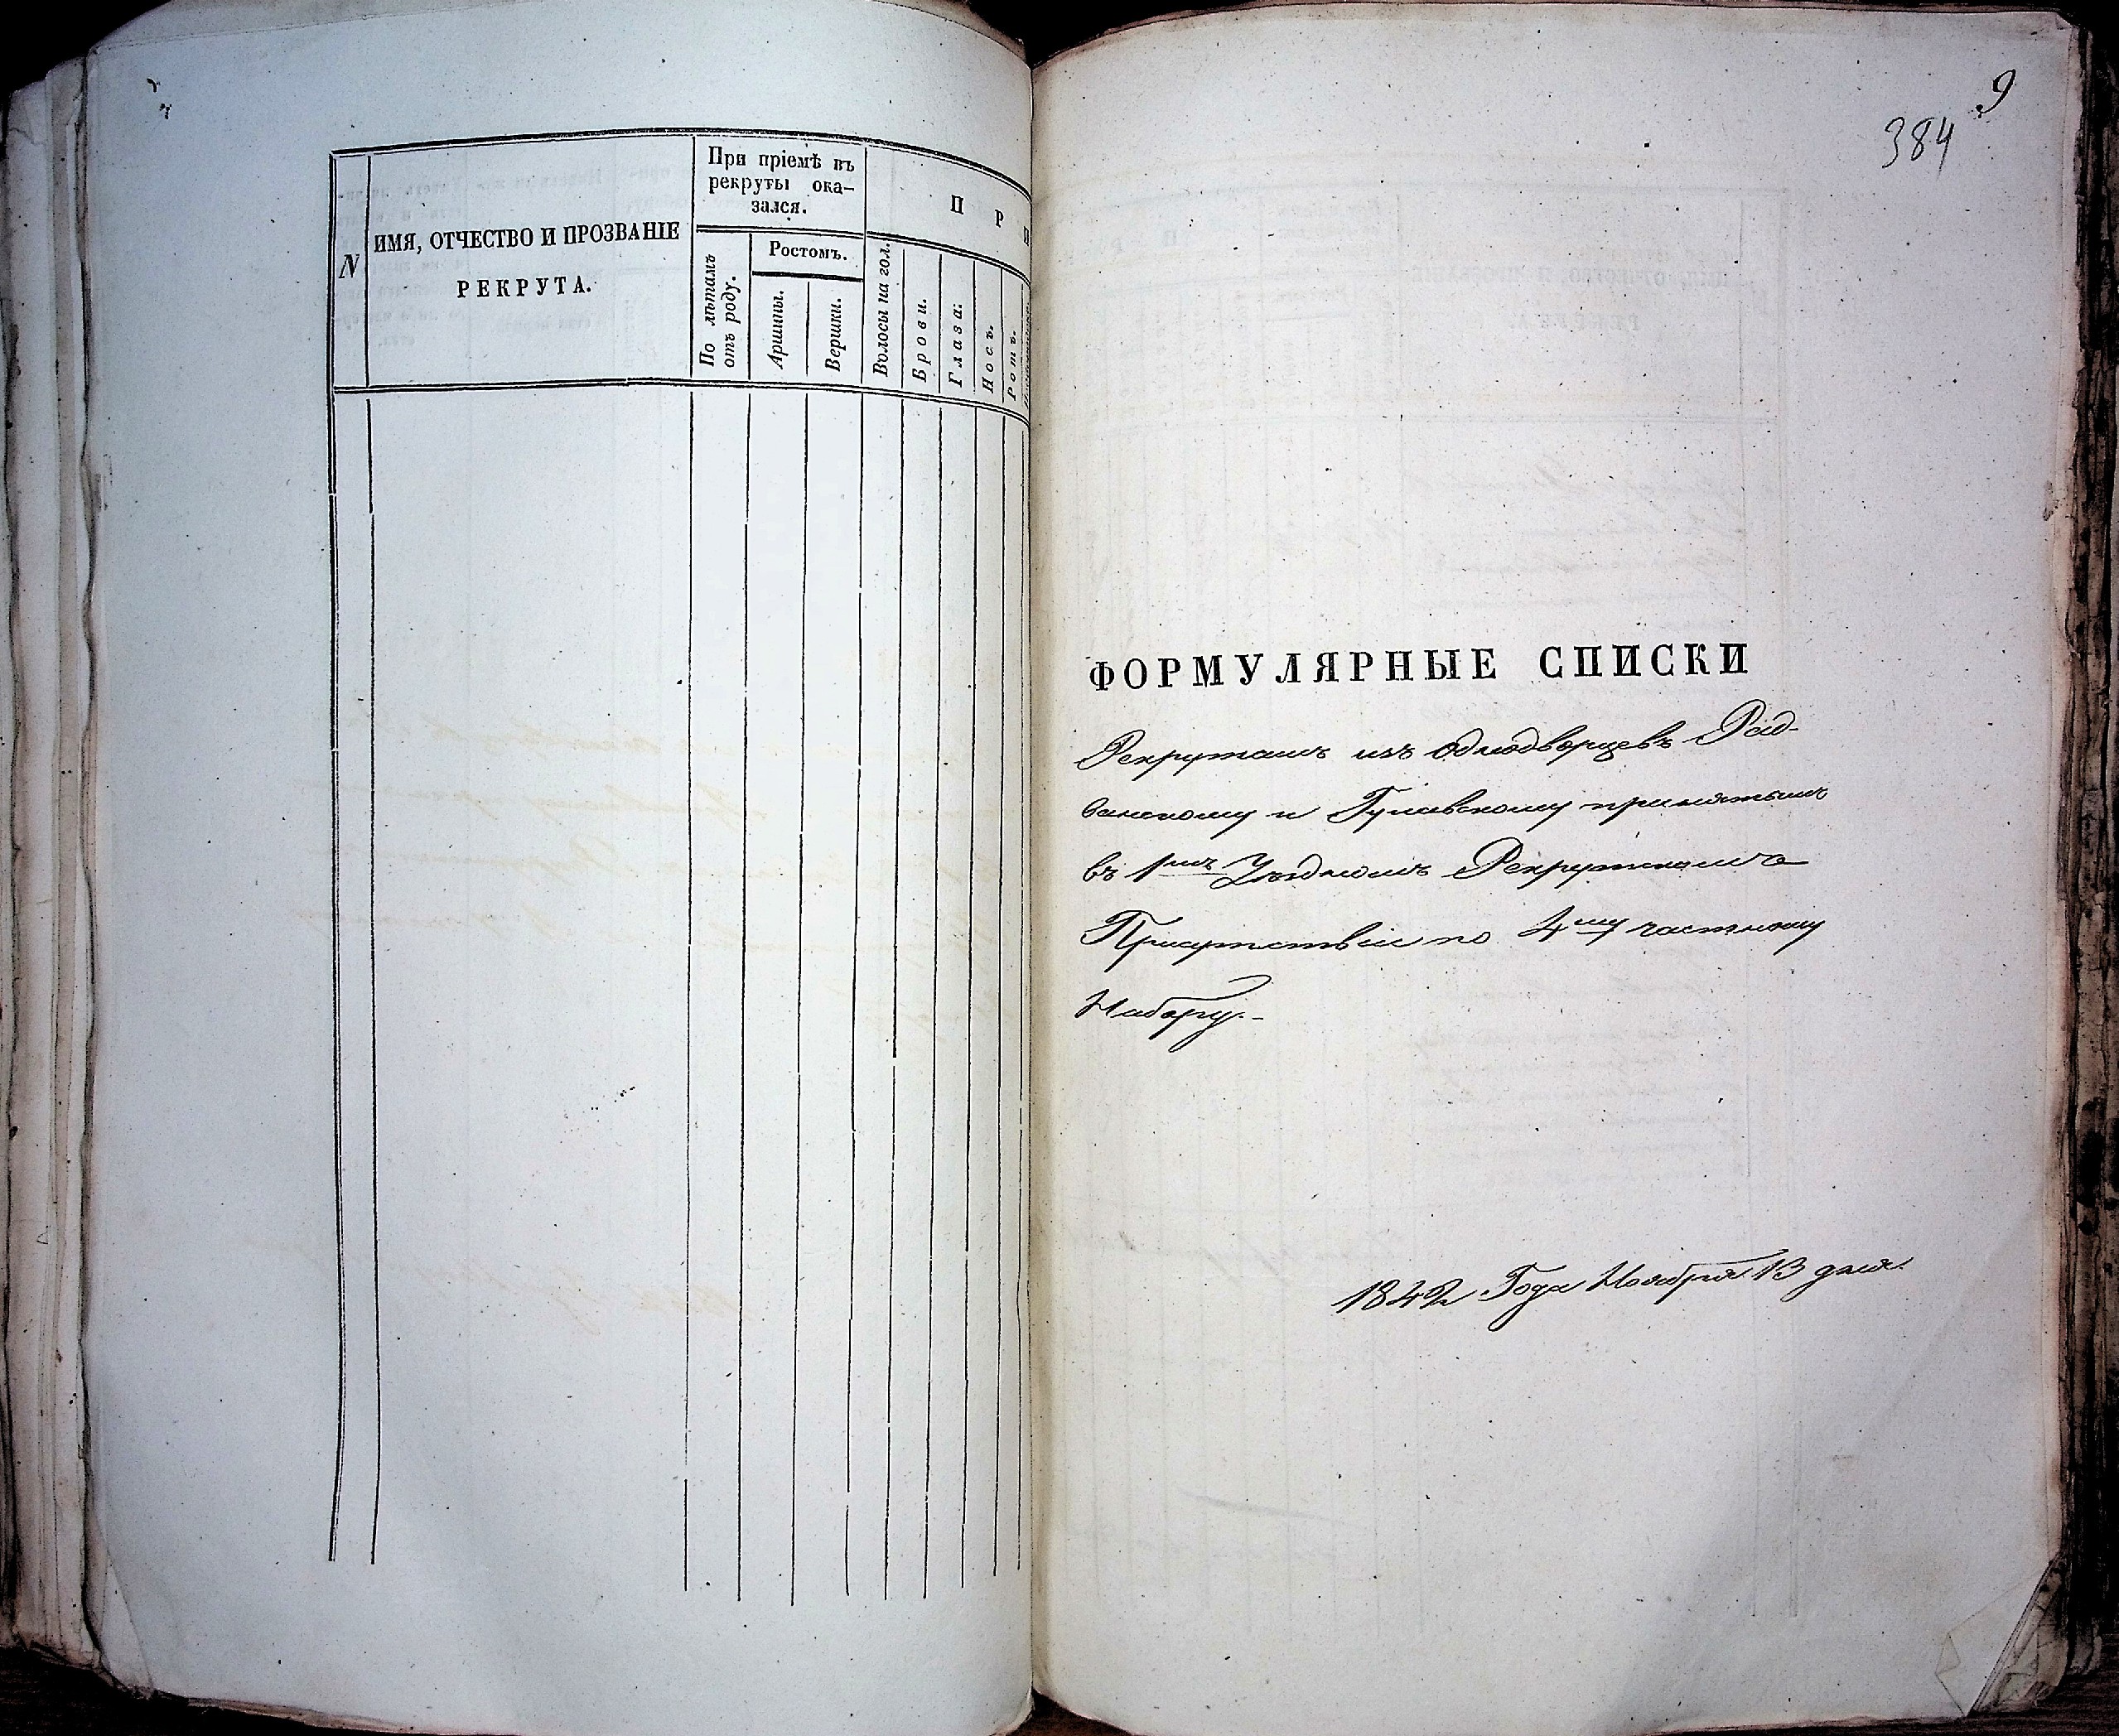 N
ИМЯ, ОТЧЕСТВО И ПРОЗВАНІЕ
РЕКРУТА.
При пріемѣ въ
рекруты ока-
зался.
По лѣтамъ
отъ роду.
Ростомъ.
Аршины.
Вершки.
П Р И
Волосы на гол.
Брови.
Глаза.
Носъ.
Ротъ.
9
384
ФОРМУЛЯРНЫЕ СПИСКИ
Рекрутамъ изъ однодворцевъ
и принятымъ
въ 1мъ Уѣздномъ Рекрутскомъ
Присутствіи по 4му частному
Набору.-
1842 Года Ноября 13 дня.